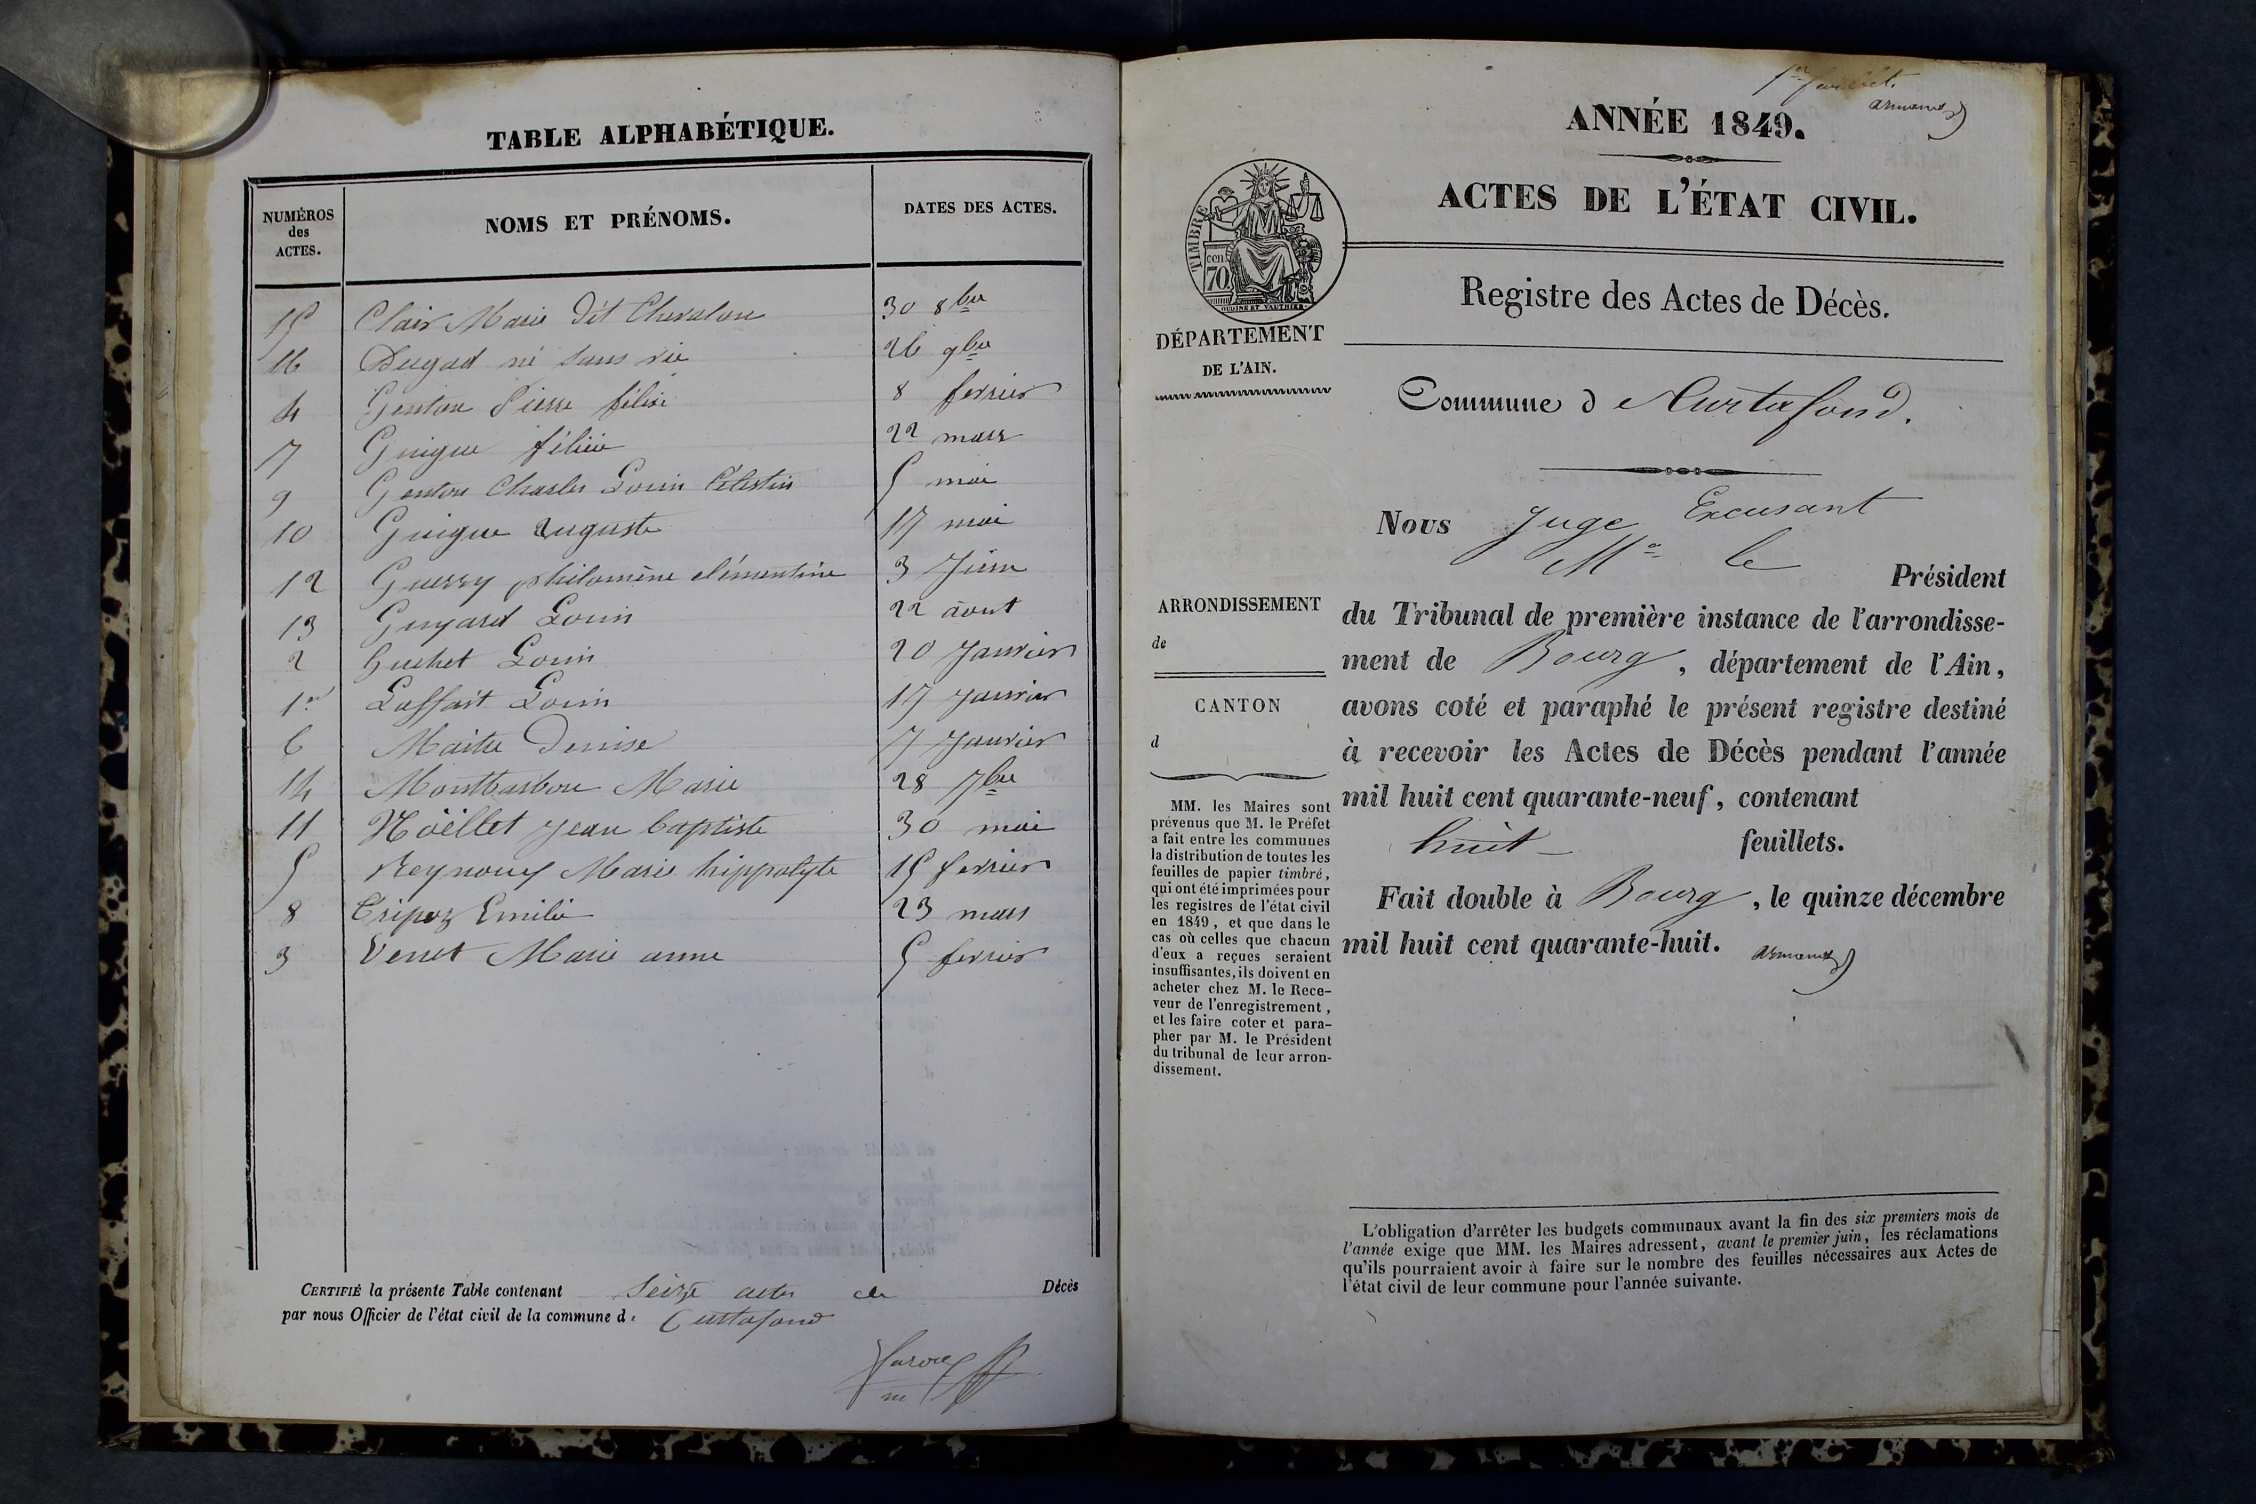 TABLE ALPHABÉTIQUE.
NUMÉROS des ACTES. NOMS ET PRÉNOMS. DATES DES ACTES.
15 Clair Marie dit Chevalon 30 8bre
16 Dugad né sans vie 26 9bre
4 Genton Pierre félix 8 fevrier
7 Guigue félicie 22 mars
9 Genton Charles Louis Célestin 5 mai
10 Guigue auguste 17 mai
12 Guerry philomène clémentine 3 Juin
13 Guyard Louis 22 àout
2 huchet Louis 20 Janvier
1er Laffait Louis 17 Janvier
6 Maitre Denise 7 Janvier
14 Montbarbon Marie 28 7bre
11 Nöëllet Jean baptiste 30 mai
5 Reynouy Marie hippolyte 15 fevrier
8 Tripoz Emilie 23 mars
3 Venet Marie anne 5 fevrier
CERTIFIÉ la présente Table contenant Seize actes de Décès
par nous Officier de l'état civil de la commune d. Curtafond
1er feuillet.
armand
ANNÉE 1849.
ACTES DE L'ÉTAT CIVIL.
TIMBRE
cen
70
OUDINÉ ET VAUTHIER.
Registre des Actes de Décès.
DÉPARTEMENT
DE L'AIN.
Commune d Curtafond.
Nous Juge Excusant
Mr le Président
ARRONDISSEMENT
de
CANTON
d
du Tribunal de première instance de l'arrondisse-
ment de Bourg, département de l'Ain,
avons coté et paraphé le présent registre destiné
à recevoir les Actes de Décès pendant l'année
mil huit cent quarante-neuf, contenant
huit feuillets.
Fait double à Bourg, le quinze décembre
mil huit cent quarante-huit. armand
MM. les Maires sont
prévenus que M. le Préfet
a fait entre les communes
la distribution de toutes les
feuilles de papier timbré,
qui ont été imprimées pour
les registres de l'état civil
en 1849, et que dans le
cas où celles que chacun
d'eux a reçues seraient
insuffisantes, ils doivent en
acheter chez M. le Rece-
veur de l'enregistrement,
et les faire coter et para-
pher par M. le Président
du tribunal de leur arron-
dissement.
L'obligation d'arrêter les budgets communaux avant la fin des six premiers mois de
l'année exige que MM. les Maires adressent, avant le premier juin, les réclamations
qu'ils pourraient avoir à faire sur le nombre des feuilles nécessaires aux Actes de
l'état civil de leur commune pour l'année suivante.